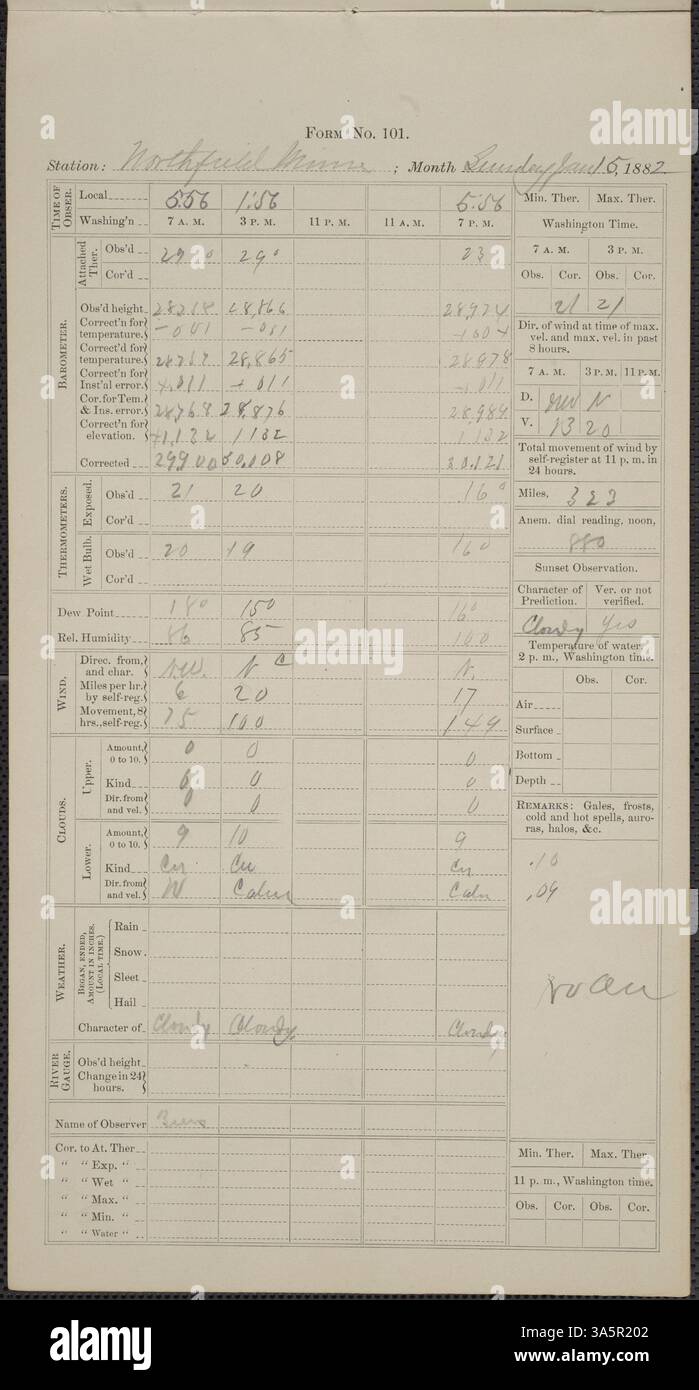 FORM No. 101.
Station: Northfield Minn ; Month Sunday Jan 15, 1882
TIME OF OBSER.
Local 5:56 1:56 5:56
Washing'n 7 A. M. 3 P. M. 11 P. M. 11 A. M. 7 P. M.
BAROMETER.
Attached Ther.
Obs'd 29° 23
Cor'd
Obs'd height 28,866 28,974
Correct'n for temperature. -001 -001 +004
Correct'd for temperature. 28,865 28,978
Correct'n for Inst'al error. +,011 +011 +,011
Cor. for Tem. & Ins. error. 28,768 28,876 28,989
Correct'n for elevation. +1,132 1132 1,132
Corrected 29900 30,008 30,121
THERMOMETERS.
Exposed.
Obs'd 21 20 16°
Cor'd
Wet Bulb.
Obs'd 20 19 16°
Cor'd
Dew Point 18° 15° 16°
Rel. Humidity 86 85 100
WIND.
Direc. from, and char. NW. N c N.
Miles per hr. by self-reg. 6 20 17
Movement, 8 hrs., self-reg. 75 100 149
CLOUDS.
Upper.
Amount, 0 to 10. 0 0 0
Kind 0 0 0
Dir. from and vel. 0 0 0
Lower.
Amount, 0 to 10. 9 10 9
Kind Cu Cu Cu
Dir. from and vel. W Calm Calm
WEATHER.
BEGAN, ENDED, AMOUNT IN INCHES. (LOCAL TIME.)
Rain
Snow
Sleet
Hail
Character of Cloudy Cloudy Cloudy
RIVER GAUGE.
Obs'd height
Change in 24 hours.
Name of Observer
Cor. to At. Ther
" " Exp. "
" " Wet "
" " Max. "
" " Min. "
" " Water "
Min. Ther. Max. Ther.
Washington Time.
7 A. M. 3 P. M.
Obs. Cor. Obs. Cor.
21 21
Dir. of wind at time of max. vel. and max. vel. in past 8 hours.
7 A. M. 3 P. M. 11 P. M.
D. NW N
V. 13 20
Total movement of wind by self-register at 11 p. m. in 24 hours.
Miles, 323
Anem. dial reading, noon,
880
Sunset Observation.
Character of Prediction. Ver. or not verified.
Cloudy Yes
Temperature of water, 2 p. m., Washington time.
Obs. Cor.
Air
Surface
Bottom
Depth
REMARKS: Gales, frosts, cold and hot spells, auroras, halos, &c.
.10
.09
Min. Ther. Max. Ther.
11 p. m., Washington time.
Obs. Cor. Obs. Cor.
alamy
Image ID: 3A5R202
www.alamy.com